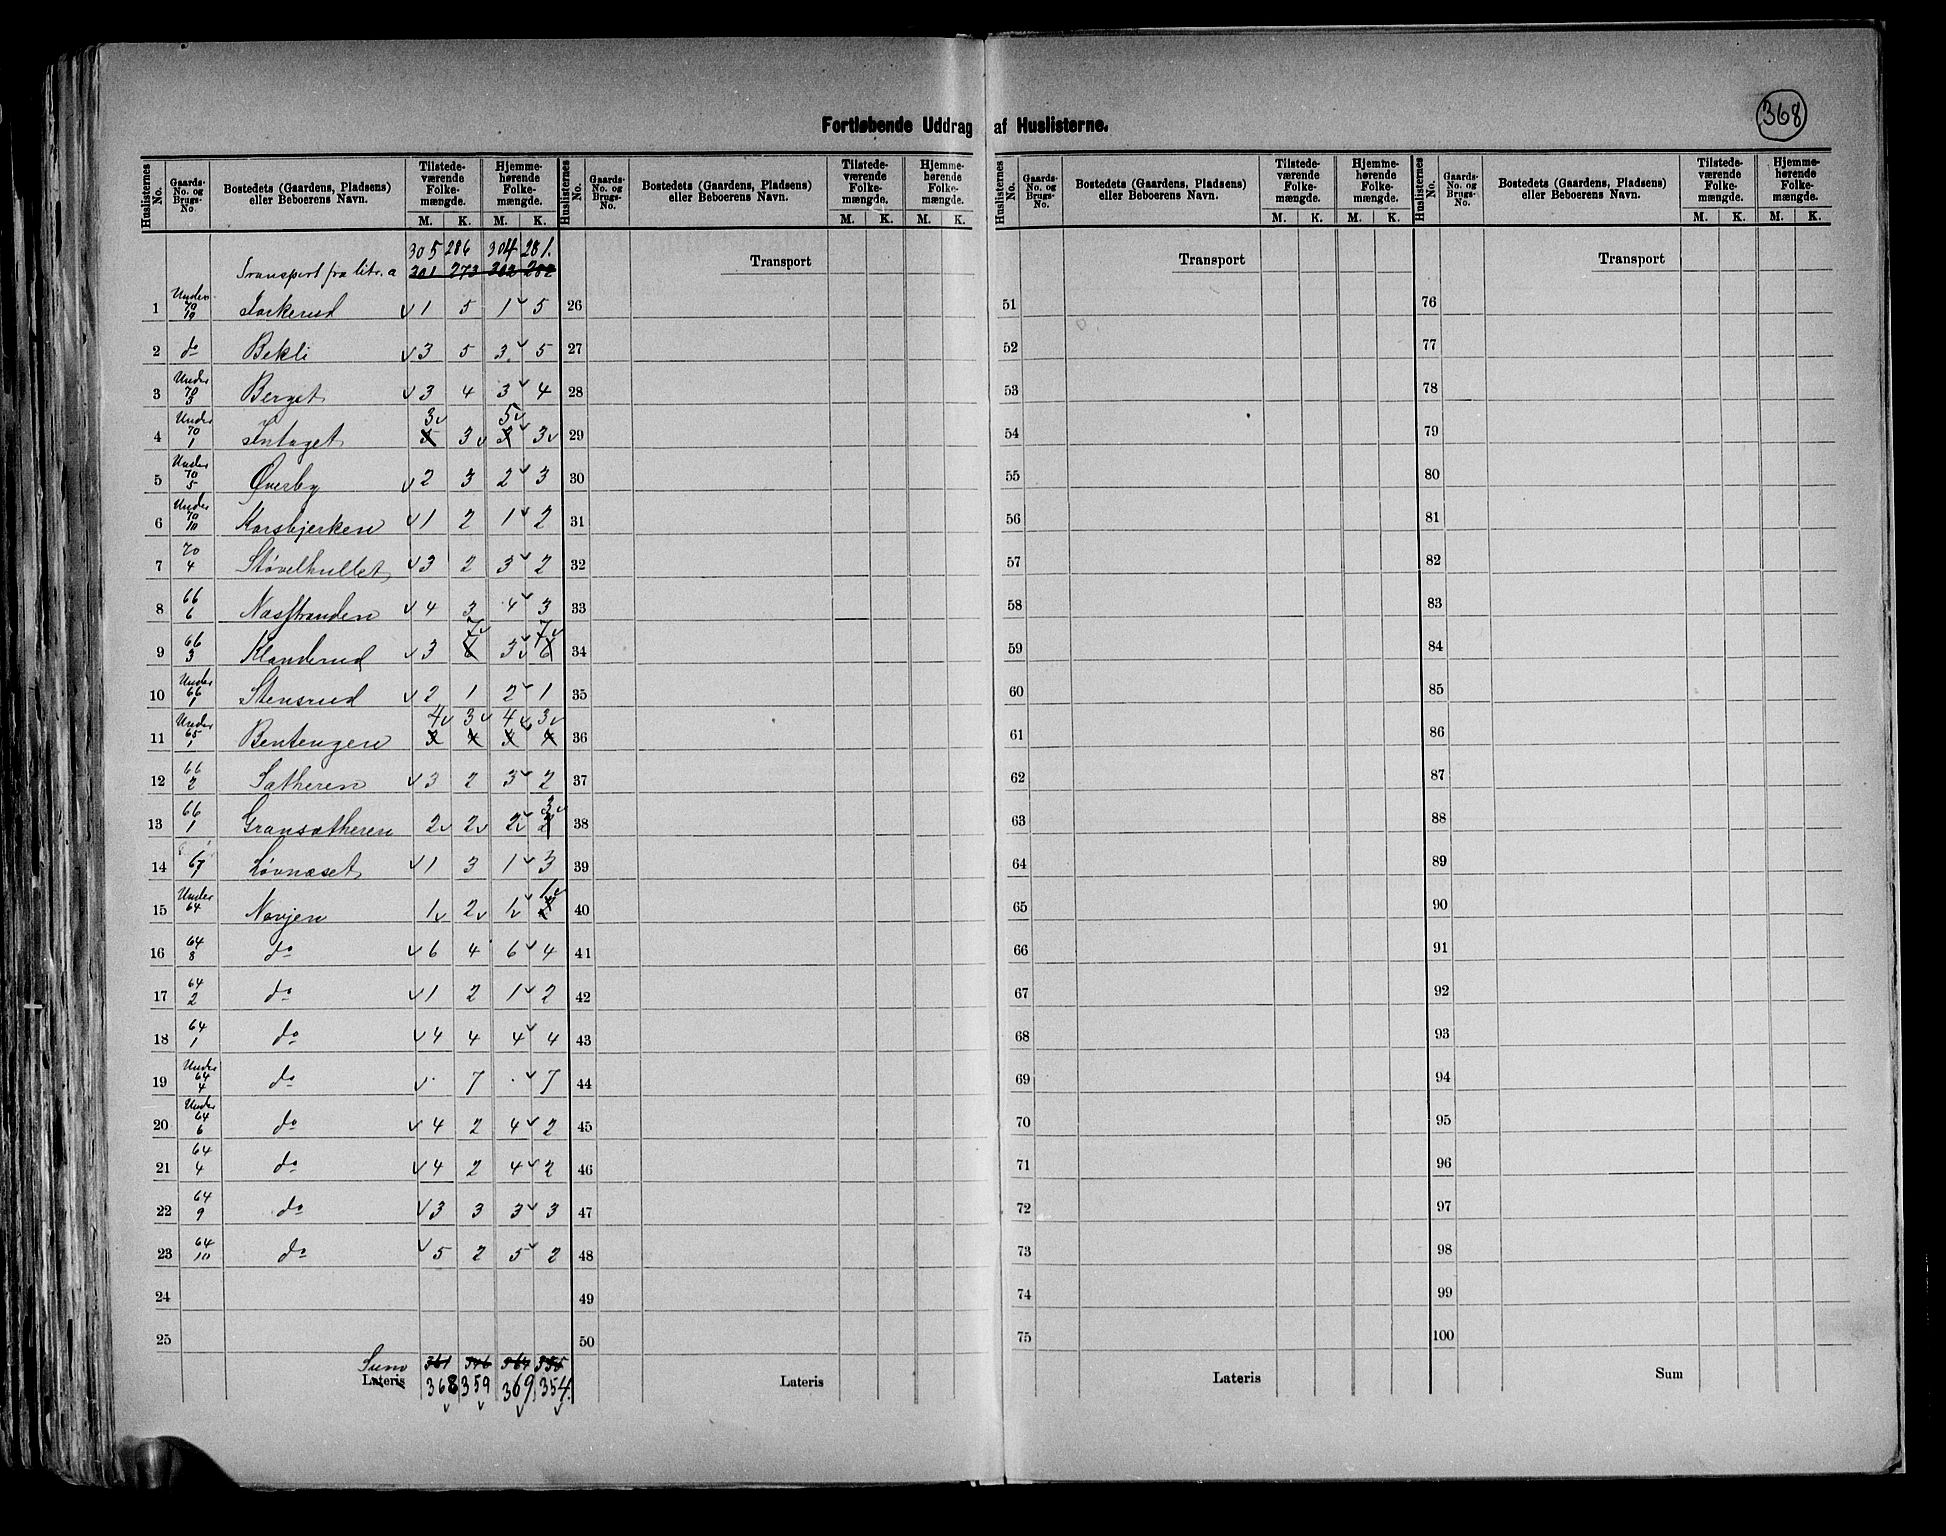 Fortløbende Uddrag af Huslisterne.
368
Huslisternes No. Gaards-No. og Brugs-No. Bostedets (Gaardens, Pladsens) eller Beboerens Navn. Tilstedeværende Folkemængde. M. K. Hjemmehørende Folkemængde. M. K.
Huslisternes No. Gaards-No. og Brugs-No. Bostedets (Gaardens, Pladsens) eller Beboerens Navn. Tilstedeværende Folkemængde. M. K. Hjemmehørende Folkemængde. M. K.
Huslisternes No. Gaards-No. og Brugs-No. Bostedets (Gaardens, Pladsens) eller Beboerens Navn. Tilstedeværende Folkemængde. M. K. Hjemmehørende Folkemængde. M. K.
Huslisternes No. Gaards-No. og Brugs-No. Bostedets (Gaardens, Pladsens) eller Beboerens Navn. Tilstedeværende Folkemængde. M. K. Hjemmehørende Folkemængde. M. K.
305 286 304 281.
Transport fra litr. a 301 273 302 282 Transport Transport Transport
1 Under 70/19 Torkerud 1 5 1 5 26 51 76
2 do Bekli 3 5 3 5 27 52 77
3 Under 70/3 Berget 3 4 3 4 28 53 78
3 5
4 Under 70/1 Intaget 5 3 3 3 29 54 79
5 Under 70/5 Øverby 2 3 2 3 30 55 80
6 Under 70/10 Korsbjerken 1 2 1 2 31 56 81
7 70/4 Støvelhullet 3 2 3 2 32 57 82
8 66/6 Næsstranden 4 3 4 3 33 58 83
7 7
9 66/3 Klanderud 3 6 3 6 34 59 84
10 Under 66/1 Stensrud 2 1 2 1 35 60 85
4 3 4 3
11 Under 65/1 Bentengen 3 4 3 4 36 61 86
12 66/2 Sætheren 3 2 3 2 37 62 87
3
13 66/1 Gransætheren 2 2 2 2 38 63 88
14 67/1 Løvnæset 1 3 1 3 39 64 89
1
15 Under 64 Navjen 1 2 1 40 65 90
16 64/8 do 6 4 6 4 41 66 91
17 64/2 do 1 2 1 2 42 67 92
18 64/1 do 4 4 4 4 43 68 93
19 Under 64/4 do . 7 . 7 44 69 94
20 Under 64/6 do 4 2 4 2 45 70 95
21 64/4 do 4 2 4 2 46 71 96
22 64/9 do 3 3 3 3 47 72 97
23 64/10 do 5 2 5 2 48 73 98
24 49 74 99
25 50 75 100
Sum 361 346 364 355
Lateris 368 359 369 354. Lateris Lateris Sum